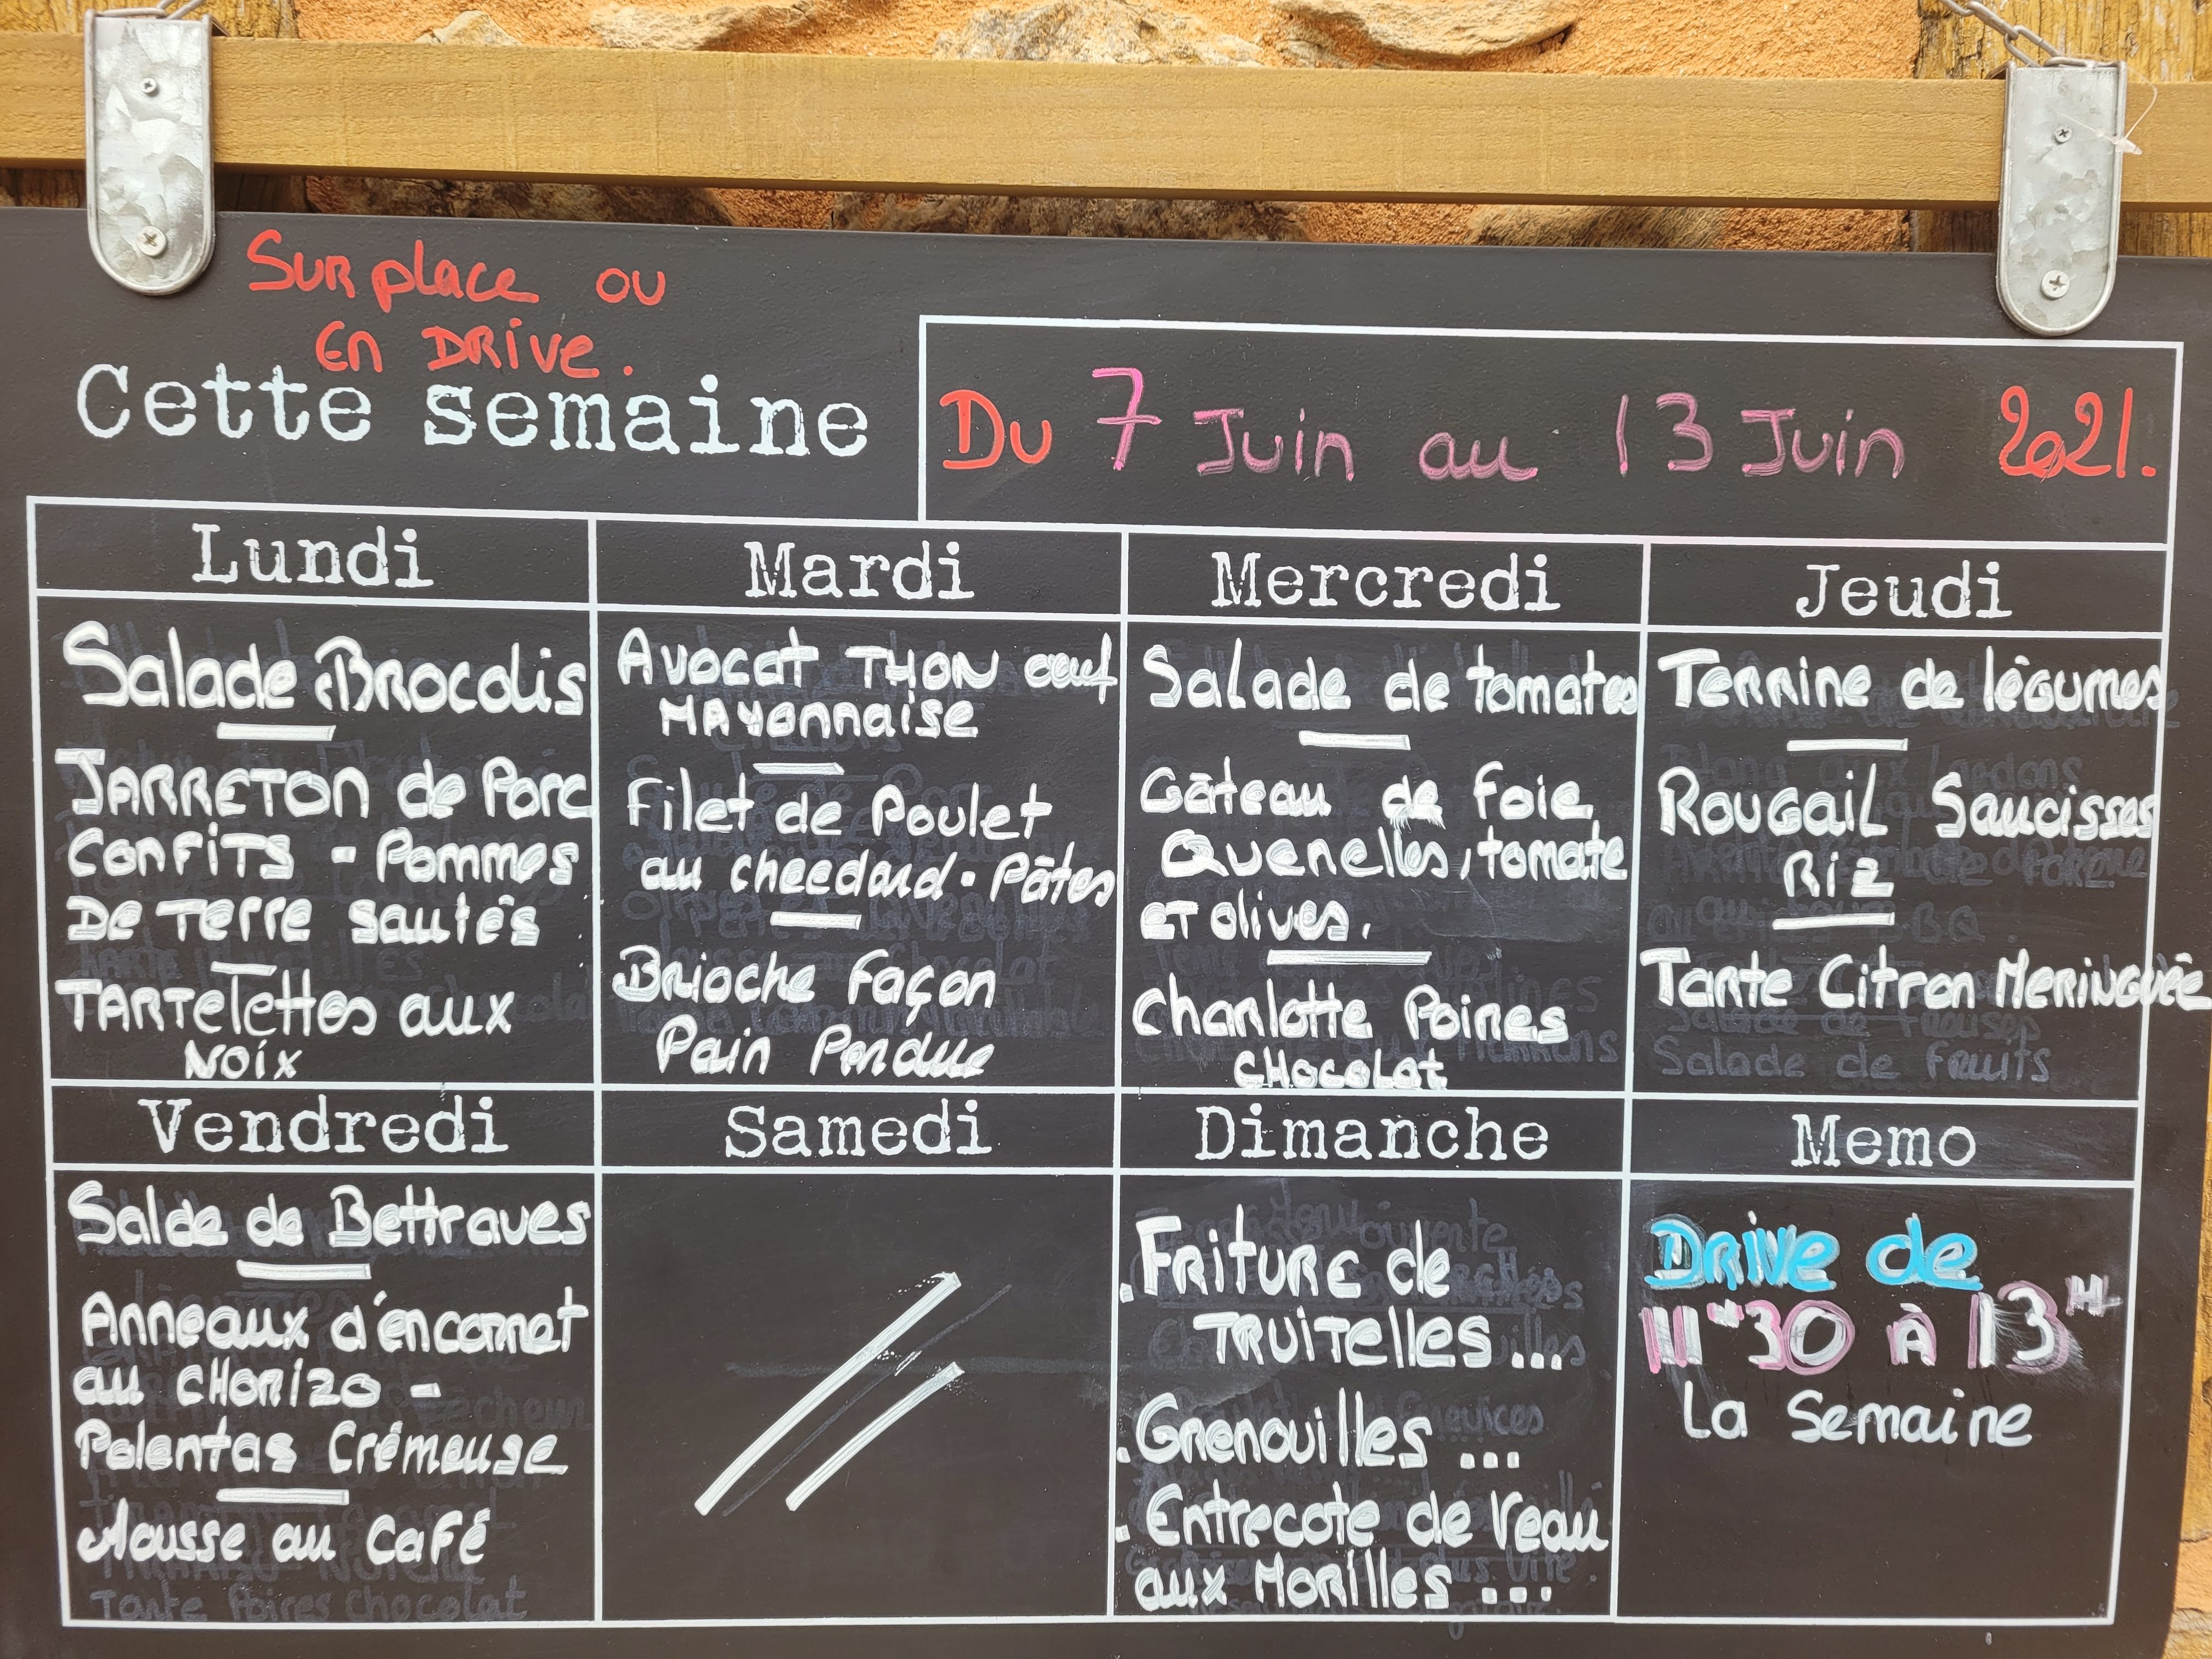 Sur place ou
en Drive.
Cette semaine
Du 7 Juin au 13 Juin 2021.
Lundi
Salade Brocolis
Jarreton de Porc
Confits - Pommes
De Terre sautés
Tartelettes aux
Noix
Mardi
Avocat Thon oeuf
Mayonnaise
Filet de Poulet
au cheedard. Pâtes
Brioche Façon
Pain Perdue
Mercredi
Salade de tomates
Gâteau de foie,
Quenelles, tomate
et olives.
Charlotte Poires
Chocolat
Jeudi
Terrine de légumes
Rougail Saucisses
Riz
Tarte Citron Meringuée
Salade de Fruits
Vendredi
Salde de Bettraves
Anneaux d'encornet
au chorizo -
Polentas Crémeuse
Mousse au Café
Tarte Poires chocolat
Samedi
Dimanche
. Friture de
Truitelles ...
. Grenouilles ...
. Entrecote de Veau
aux Morilles ...
Memo
Drive de
11H30 à 13H
La Semaine